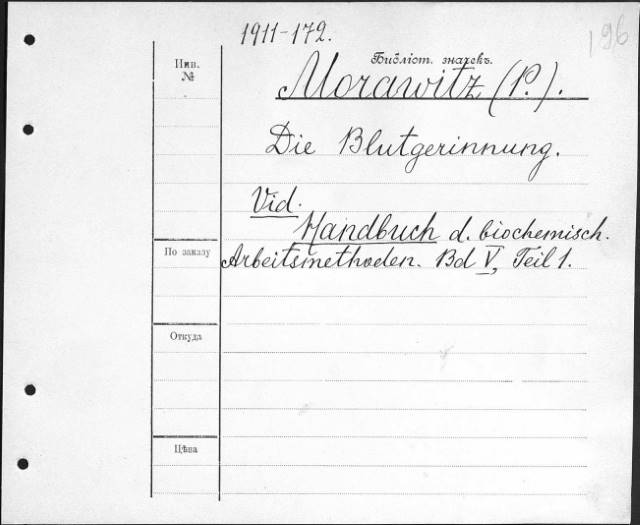 1911-172.
196
Инв.
№
Библіот. значекъ.
Morawitz (P.).
Die Blutgerinnung.
Vid.
Handbuch d. biochemisch.
По заказу
Arbeitsmethoden. Bd V, Teil 1.
Откуда
Цѣна